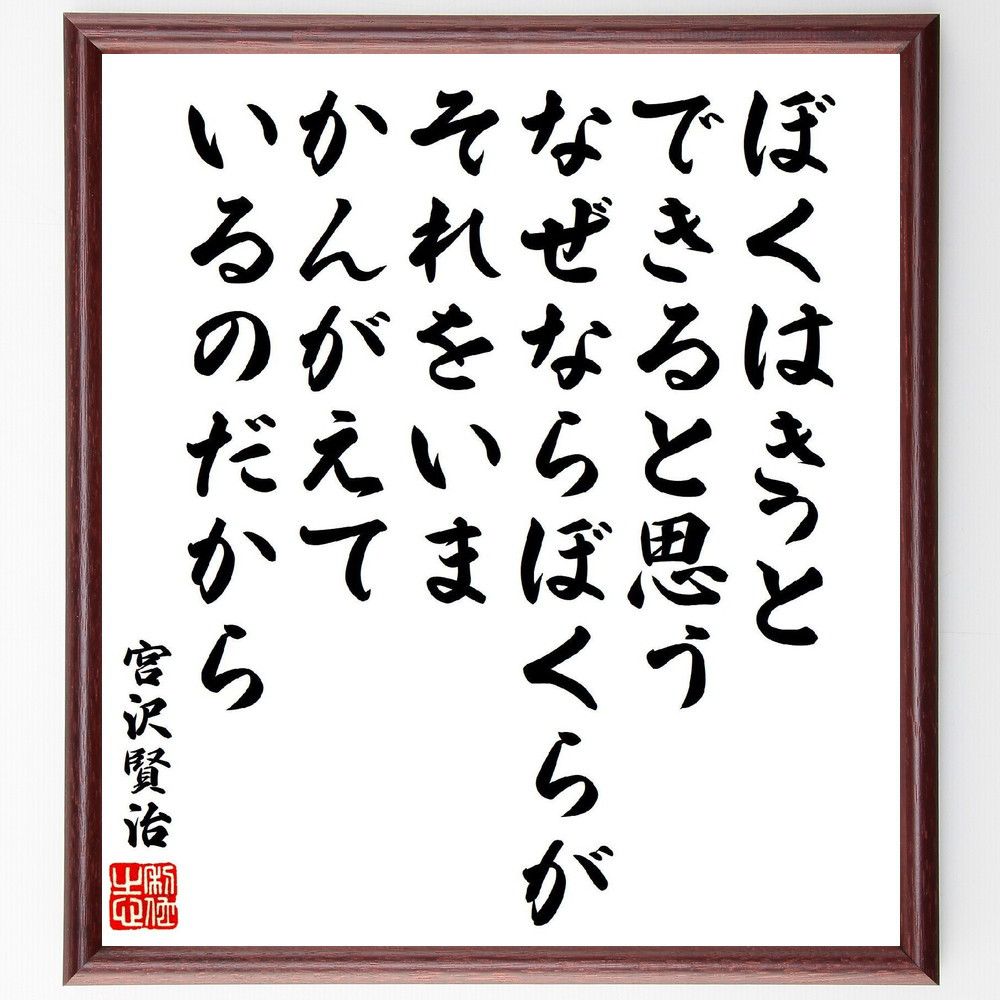 ぼくはきっと
できると思う
なぜならぼくらが
それをいま
かんがえて
いるのだから
宮沢賢治